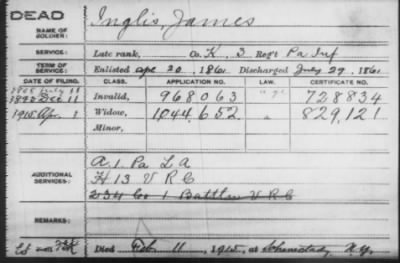 DEAD
NAME OF SOLDIER: Inglis, James
SERVICE: Late rank, Co. K, 3 Reg't Pa Inf
TERM OF SERVICE: Enlisted Apr 20, 1861 Discharged July 29, 1861
DATE OF FILING. CLASS. APPLICATION NO. LAW. CERTIFICATE NO.
July 11
189 Dec 11 Invalid, 968063 728834
1915 Apr. 1 Widow, 1044,652 " 829,121
Minor,
ADDITIONAL SERVICES: A. 1. Pa L A
H 13 V R C
234 Co 1 Battln V R C
REMARKS:
Died Feb 11, 1915, at Schenectady N.Y.